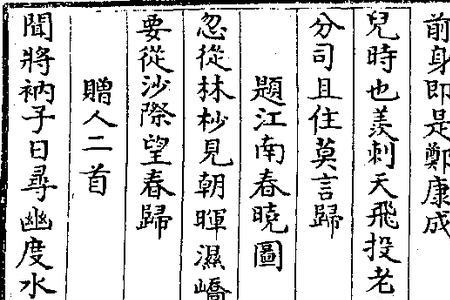 前身即是鄭康成
兒時也羨刺天飛投老
分司且住莫言歸
題江南春曉圖
忽從林杪見朝暉濕嶠
要從沙際望春歸
贈人二首
聞將衲子日尋幽度水